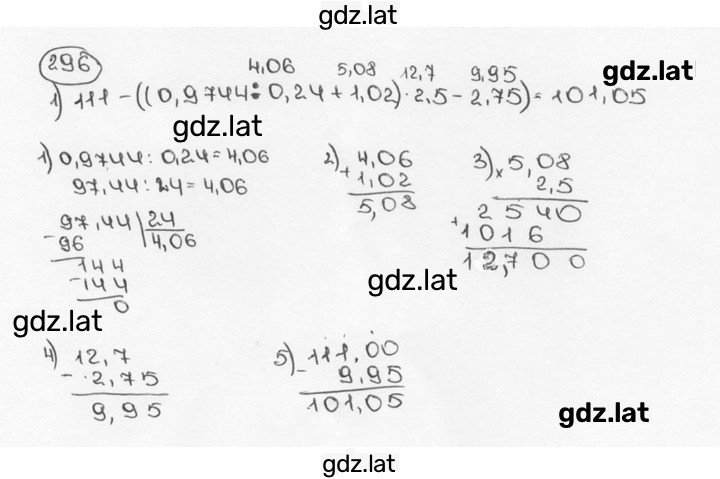 gdz.lat
296
4,06 5,08 12,7 9,95
gdz.lat
1) 111 - ((0,9744 : 0,24 + 1,02) · 2,5 - 2,75) = 101,05
gdz.lat
1) 0,9744 : 0,24 = 4,06
97,44 : 24 = 4,06
97,44 | 24
- 96 | 4,06
144
- 144
0
2) 4,06
+ 1,02
5,08
3) × 5,08
2,5
2540
+ 1016
12,700
gdz.lat
gdz.lat
4) 12,7
- 2,75
9,95
5) - 111,00
9,95
101,05
gdz.lat
gdz.lat